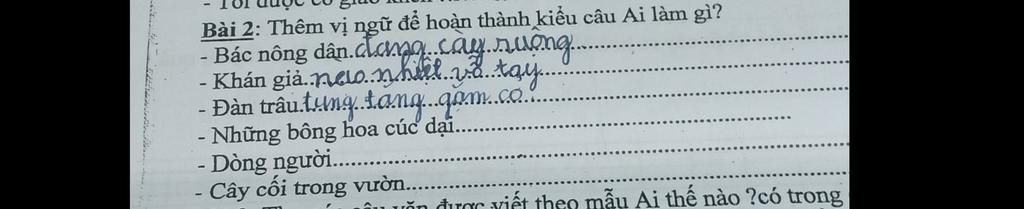 - Tôi được cô giáo khen
Bài 2: Thêm vị ngữ để hoàn thành kiểu câu Ai làm gì?
- Bác nông dân đang cày ruộng
- Khán giả reo nhiệt vỗ tay
- Đàn trâu tung tăng gặm cỏ
- Những bông hoa cúc dại
- Dòng người
- Cây cối trong vườn
được viết theo mẫu Ai thế nào ?có trong